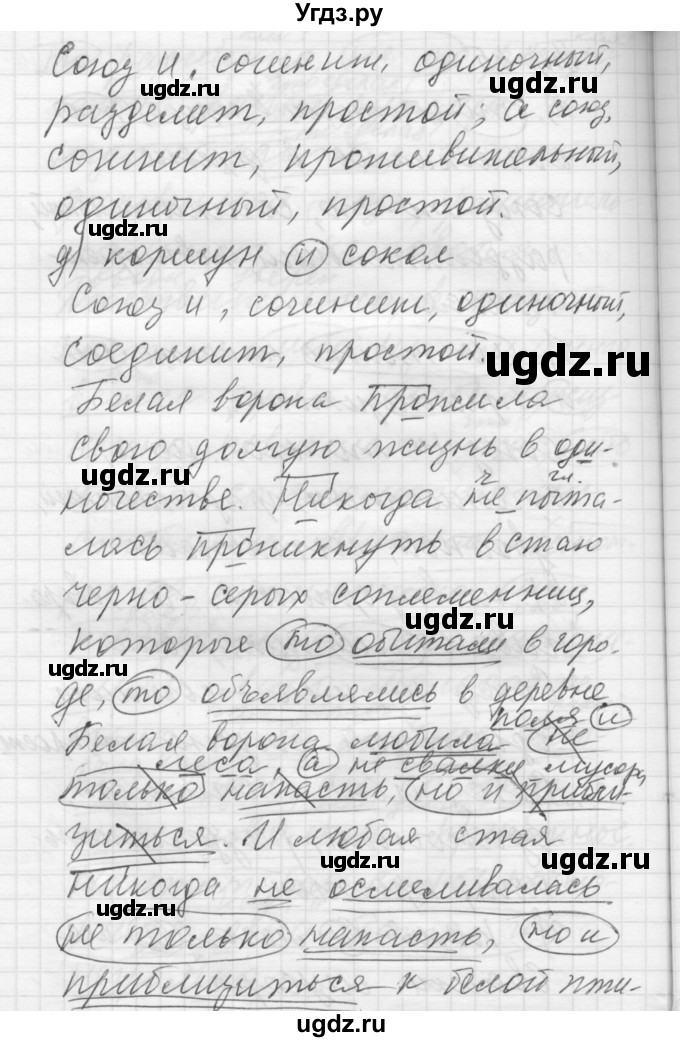 Угдз.ру
Союз и, сочинит, одиночный,
разделит, простой; а союз,
сочинит, противительный,
одиночный, простой.
д) коршун и сокол
Союз и, сочинит, одиночный,
соединит, простой.
Белая ворона прожила
свою долгую жизнь в оди-
ночестве. Никогда не пыта-
лась проникнуть в стаю
черно-серых соплеменниц,
которые то обитали в горо-
де, то объявлялись в деревне
поля и
Белая ворона любила не
леса, а не свалки мусор,
только напасть, но и прибли-
зиться. И любая стая
никогда не осмеливалась
не только напасть, но и
приблизиться к белой пти-
ugdz.ru
ugdz.ru
ugdz.ru
ugdz.ru
ugdz.ru
ugdz.ru
ugdz.ru
ugdz.ru
ugdz.ru
ugdz.ru
ugdz.ru
ugdz.ru
ugdz.ru
ugdz.ru